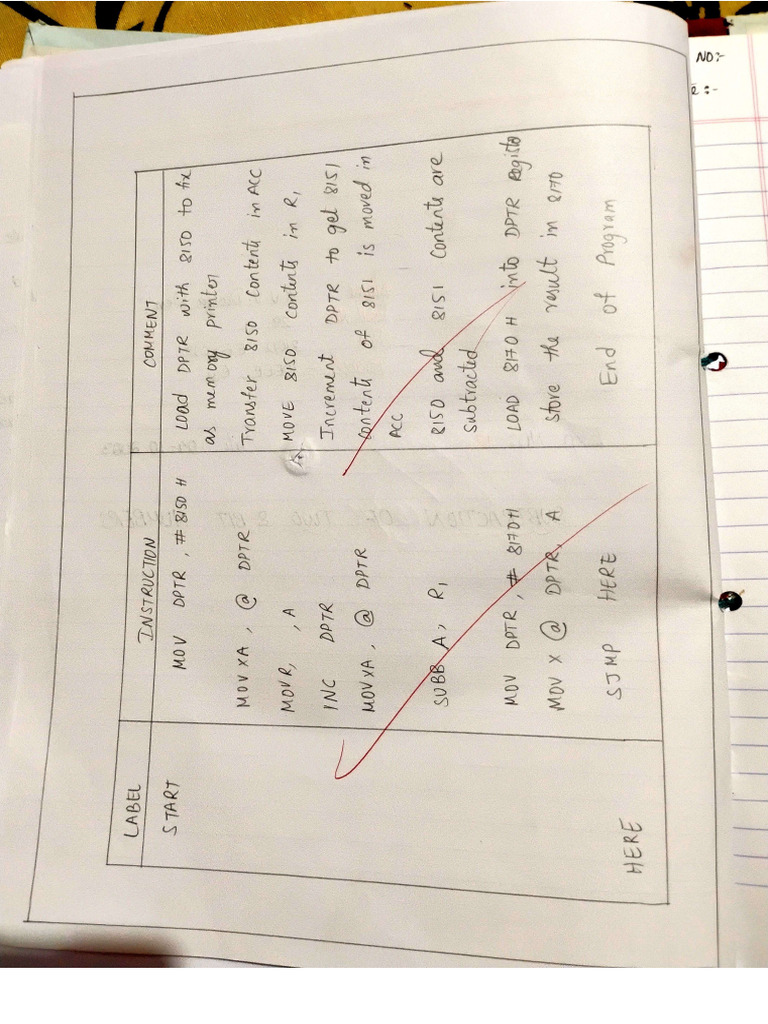 NO:-
e:-
LABEL INSTRUCTION COMMENT
START MOV DPTR, #8150 H Load DPTR with 8150 to fix
as memory printer
MOVXA, @ DPTR Transfer 8150 contents in ACC
MOVR1, A MOVE 8150 contents in R1
INC DPTR Increment DPTR to get 8151
MOVXA, @ DPTR contents of 8151 is moved in
ACC
SUBB A, R1 8150 and 8151 contents are
subtracted
MOV DPTR, # 8170H LOAD 8170 H into DPTR registo
MOV X @ DPTR, A store the result in 8170
HERE SJMP HERE End of Program